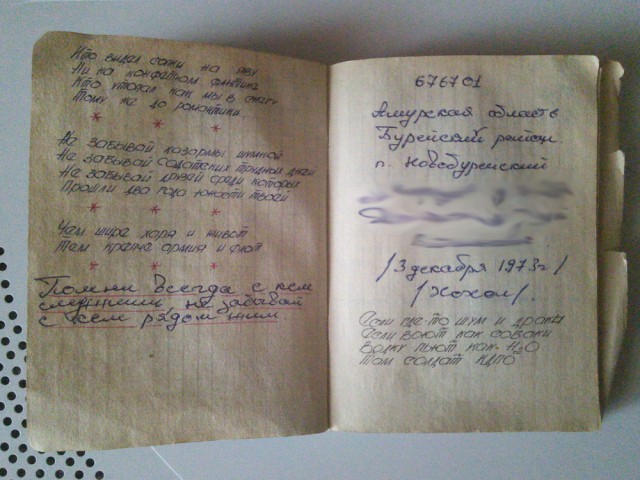 Кто видел сажи на яву
Ни на конфатном фантике
Кто утопал как мы в снегу
Тому не до романтики.
* * *
Не забывай казармы шумной
Не забывай солдатских трудных дней
Не забывай друзей среди которых
Прошли два года юности твоей
* * *
Чам шира харя и живот
Тем крапча армия и флот
* * *
Помни всегда с кем
служишь, не забывай
с кем рядом жил
676701
Амурская область
Бурейский район
п. Новобурейский
/3 декабря 1973г/
/Хохол/.
Если где-то шум и драки
Если воют как собаки
Водку пьют как H2O
Там солдат КДПО